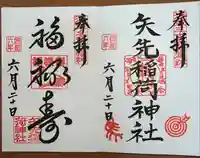 奉拝
矢先稲荷神社
六月二十日
奉拝
福禄寿
六月二十日